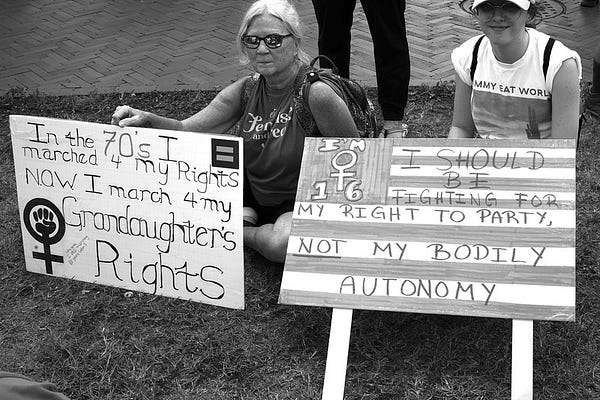 In the 70's I
marched 4 my Rights
NOW I march 4 my
Grandaughter's
Rights
I'm
16
I SHOULD
BE
FIGHTING FOR
MY RIGHT TO PARTY,
NOT MY BODILY
AUTONOMY
MMY EAT WORL